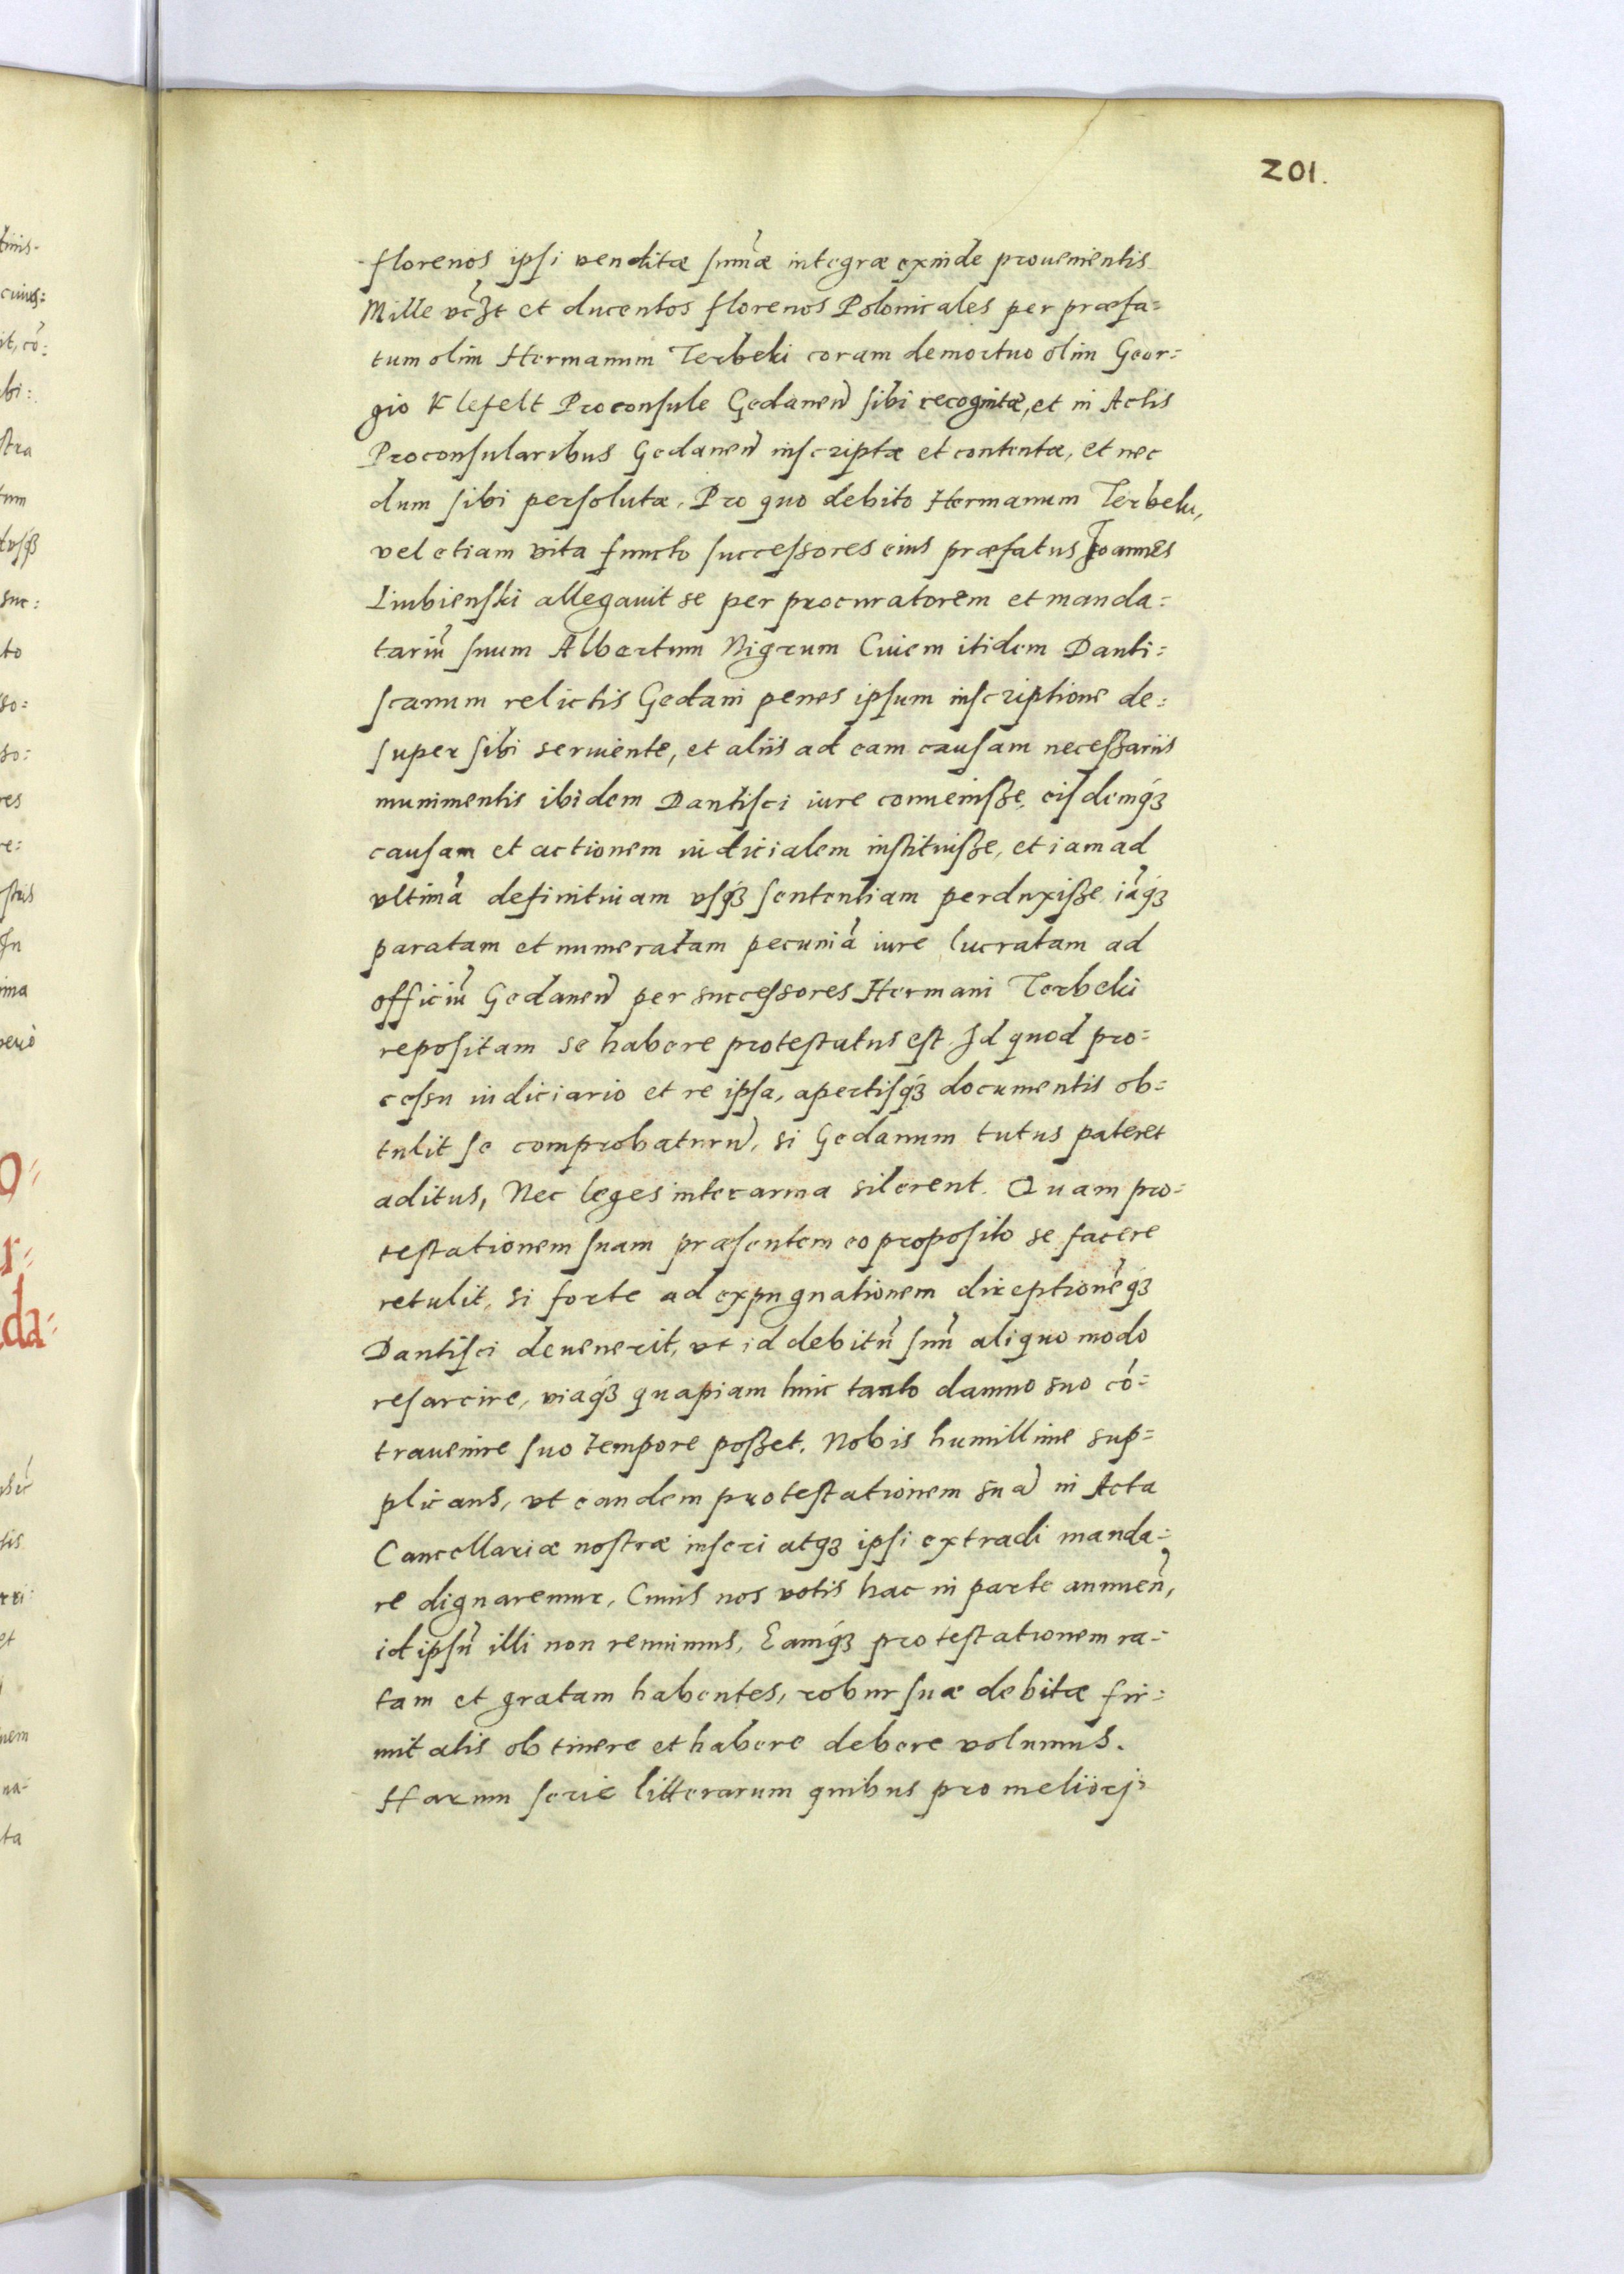 201.
florenos ipsi venditæ sum̃æ integræ exinde prouenientis
Mille vcʒt et ducentos florenos Polonicales per præfa=
tum olim Hermanum Terbeki coram demortuo olim Geor=
gio Klefelt Proconsule Gedaneñ sibi recognitæ, et in Actis
Proconsularibus Gedaneñ inscriptæ et contentæ, et nec
dum sibi persolutæ. Pro quo debito Hermanum Terbeki,
vel etiam vita functo successores eius præfatus Joannes
Lubienski allegauit se per procuratorem et manda=
tariũ suum Albertum Nigrum Ciuem itidem Danti=
scanum relictis Gedani penes ipsum inscriptione de=
super sibi seruiente, et aliis ad eam causam necessariis
munimentis ibidem Dantisci iure conuenisse, eisdemqʒ
causam et actionem iudicialem instituisse, et iam ad
vltimã definitiuam vsqʒ sententiam perduxisse iãqʒ
paratam et numeratam pecuniã iure lucratam ad
officiũ Gedaneñ per successores Hermani Terbeki
repositam se habere protestatus est. Id quod pro=
cessu iudiciario et re ipsa, apertisqʒ documentis ob=
tulit se comprobaturũ, si Gedanum tutus pateret
aditus, Nec leges inter arma silerent. Quam pro=
testationem suam præsentem eo proposito se facere
retulit, si forte ad expugnationem direptionẽqʒ
Dantisci deuenerit, vt id debitũ suũ aliquo modo
resarcire, viaqʒ quapiam huic tanto damno suo cõ=
trauenire suo tempore posset. Nobis humillime sup=
plicans, vt eandem protestationem suã in Acta
Cancellariæ nostræ inseri atqʒ ipsi extradi manda=
re dignaremur. Cuius nos votis hac in parte annueñ,
id ipsũ illi non renuimus, Eamqʒ protestationem ra=
tam et gratam habentes, robur suæ debitæ fir=
mitatis obtinere et habere debere volumus.
Harum serie litterarum quibus pro meliori